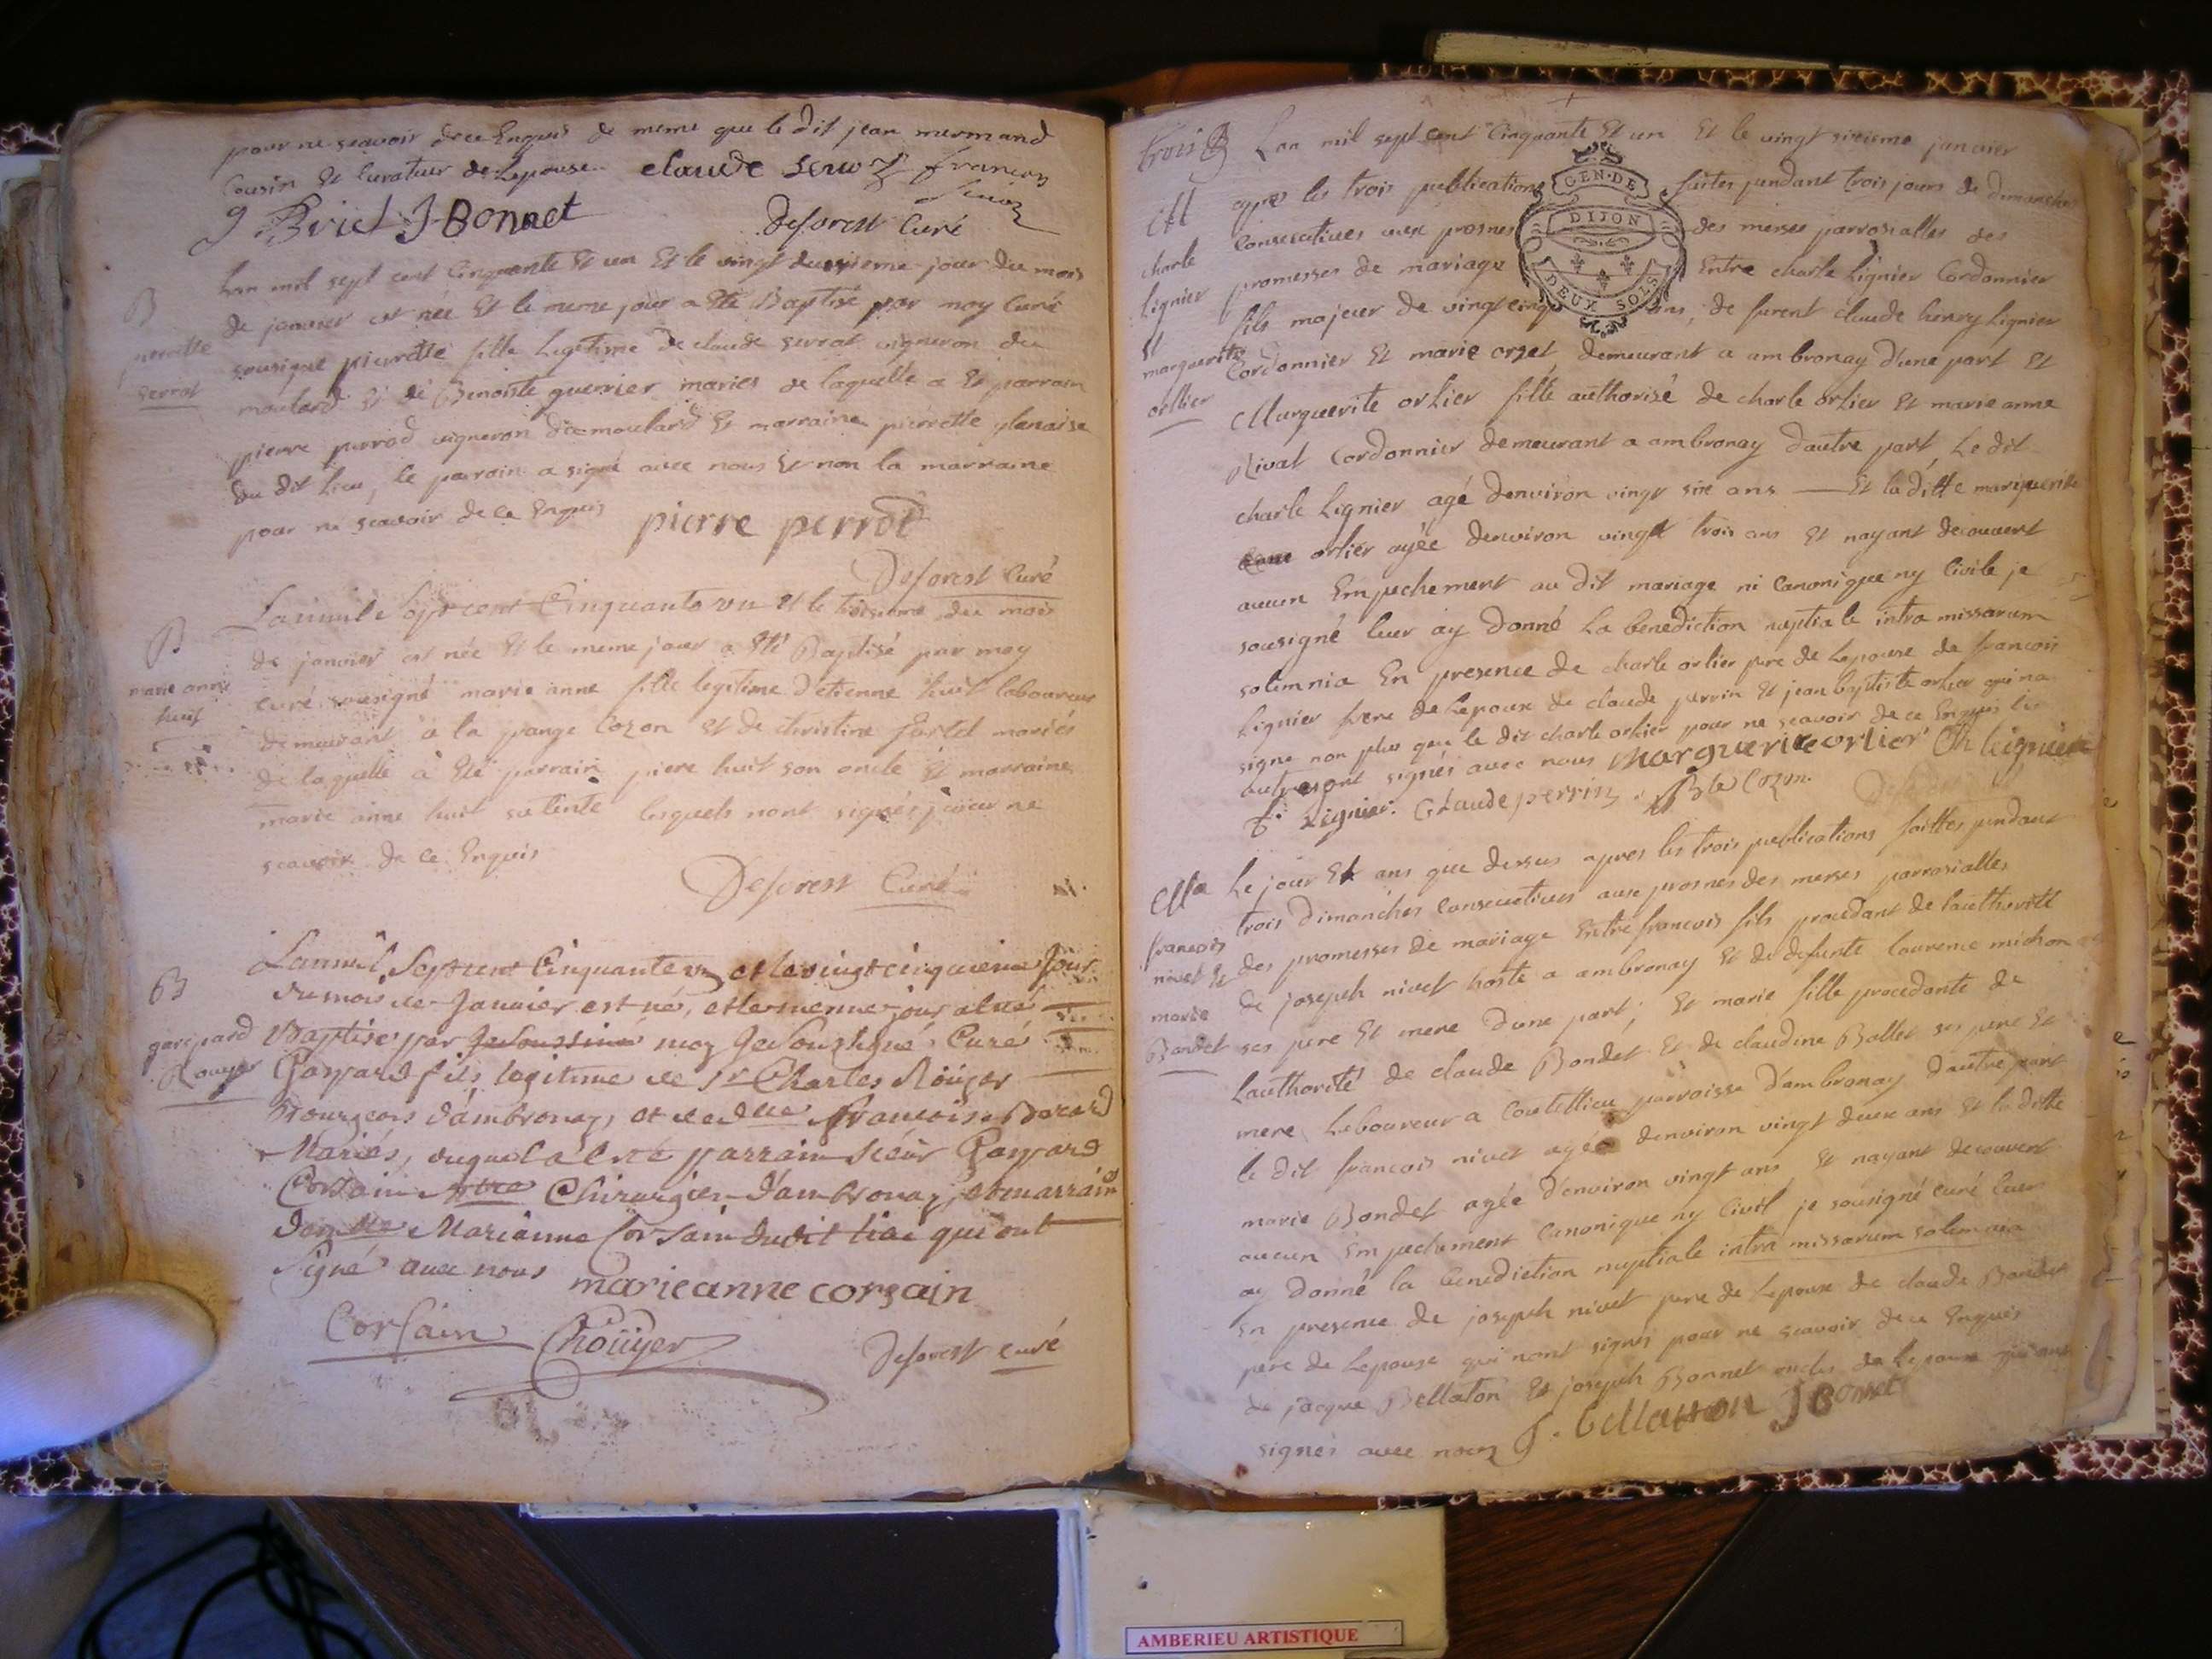 pour ne scavoir de ce Enquis de meme que le dit jean mermand
Cousin Et Curateur de Lepouse claude Servoz francois
J Briel J Bonnet Deforest Curé
B
pierrette
Serrat
Lan mil sept cent Cinquante Et un Et le vingt deuxieme jour du mois
de janvier est née Et le meme jour a Eté Baptisé par moy Curé
sousigné pierrette fille Legitime de claude serrat vigneron du
moulard Et de Benoiste guerrier mariés de laquelle a Et parrain
pierre perrod vigneron du moulard Et marraine pierrette
du dit Lieu, le parain a signé avec nous Et non la marraine
pour ne scavoir de ce Enquis pierre perrot
Deforest Curé
B
marie anne
huit
Lanmil Sept cent Cinquante vn Et le troisieme du mois
de janvier est née Et le meme jour a Eté Baptisé par moy
curé sousigné marie anne fille legitime d'etienne huit laboureur
demeurant a la grange Cozon Et de christine mariés
de laquelle a Eté parrain piere huit son oncle Et marraine
marie anne huit sa tente lesquels nont signés pour ne
scavoir de ce Enquis
Deforest Curé
B
gaspard
Rouyer
Lanmil Sept cent Cinquante vn et le vingt cinquieme Jour
du mois de Janvier est né, et le meme jour a été
Baptisé par Je soussiné moy Je Sousigné Curé
Gaspard fils legitime de Sr Charles Roüyer
Bourgeois d'ambronay, et de dlle francoise
Mariés, duquel a été parrain Sieur Gaspard
Corsain Chirurgien d'ambronay, et marraine
dam lle Marianne Corsain dudit lieu qui ont
Signé avec nous marieanne corsain
Corsain Choüyer Deforest curé
trois
M
charle
Lignier
Et
marguerite
orllier
Lan mil sept cent Cinquante Et un Et le vingt sixieme janvier
apres les trois publications faites pendant trois jours de dimanches
Consecutives aux prosnes des messes parrosialles des
promesses de mariage Entre charle Lignier Cordonnier
fils majeur de vingt cinq ans, de furent claude henry Lignier
Cordonnier Et marie orset demeurant a ambronay d'une part Et
Marguerite orlier fille authorisé de charle orlier Et marie anne
Rivat Cordonnier demeurant a ambronay dautre part, Le dit
charle Lignier agé denviron vingt six ans Et la ditte marguerite
orlier agée denviron vingt trois ans Et nayant decouvert
aucun Empechement au dit mariage ni Canonique ny Civile je
sousigné leur ay donné la benediction nuptiale intra missarum
solemnia En presence de charle orlier pere de Lepouse de francois
Lignier frere de Lepoux de claude perrin Et jean baptiste orlier qui na
signe non plus que le dit charle orlier pour ne scavoir de ce Enquis les
autres ont signés avec nous Marguerite orlier Ch Leignier
f. Lignier. Claude perrin. Bte Cozon.
GEN·DE
DIJON
DEUX SOLS
Ma
francois
nivet Et
marie
Bondet
Le jour Et ans que dessus apres les trois publications faittes pendant
trois dimanches Consecutives aux prosnes des messes parrosialles
des promesses de mariage Entre francois fils procedant de lauthorité
de joseph nivet hoste a ambronay Et de defunte laurence michon
ses pere Et mere dune part; Et marie fille procedante de
Lauthorité de claude Bondet Et de claudine Ballet ses pere Et
mere Laboureur a Coutellieu parroisse d'ambronay dautre part
le dit francois nivet agée denviron vingt deux ans Et la ditte
marie Bondet agée d'environ vingt ans Et nayant decouvert
aucun Empechement Canonique ny Civil je sousigné curé leur
ay donné la benediction nuptiale intra missarum solemnia
En presence de joseph nivet pere de Lepoux de claude Bondet
pere de Lepouse qui nont signés pour ne scavoir de ce Enquis
de jacque Bellaton Et joseph Bonnet oncles de Lepouse qui ont
signés avec nous J. bellaton J Bonnet
AMBERIEU ARTISTIQUE